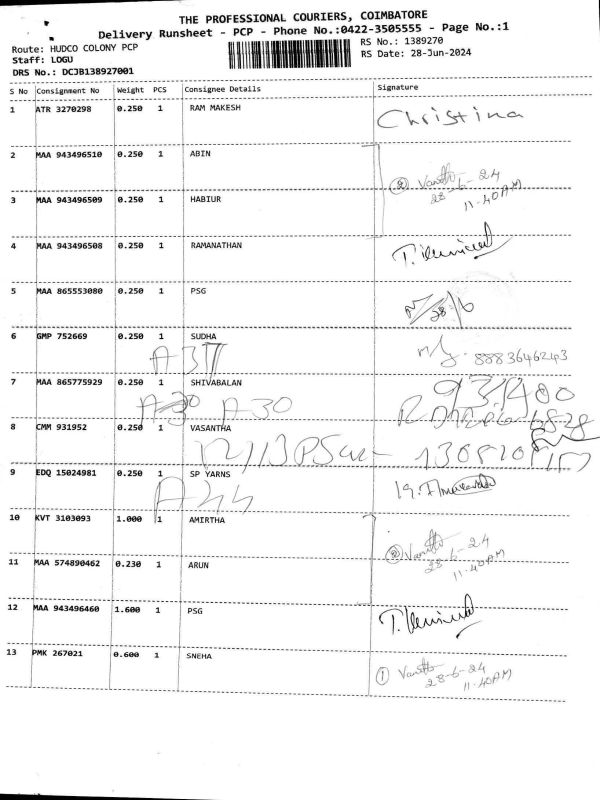 THE PROFESSIONAL COURIERS, COIMBATORE
Delivery Runsheet - PCP - Phone No.:0422-3505555 - Page No.:1
Route: HUDCO COLONY PCP
RS No.: 1389270
Staff: LOGU
RS Date: 28-Jun-2024
DRS No.: DCJB138927001
S No Consignment No Weight PCS Consignee Details Signature
1 ATR 3270298 0.250 1 RAM MAKESH Christina
2 MAA 943496510 0.250 1 ABIN
28-6-24
11.40AM
3 MAA 943496509 0.250 1 HABIUR
4 MAA 943496508 0.250 1 RAMANATHAN
5 MAA 865553080 0.250 1 PSG
6 GMP 752669 0.250 1 SUDHA
8883646243
7 MAA 865775929 0.250 1 SHIVABALAN
A30
8 CMM 931952 0.250 1 VASANTHA
9 EDQ 15024981 0.250 1 SP YARNS
A44
10 KVT 3103093 1.000 1 AMIRTHA
28-6-24
11.40AM
11 MAA 574890462 0.230 1 ARUN
12 MAA 943496460 1.600 1 PSG
13 PMK 267021 0.600 1 SNEHA
28-6-24
11.40AM